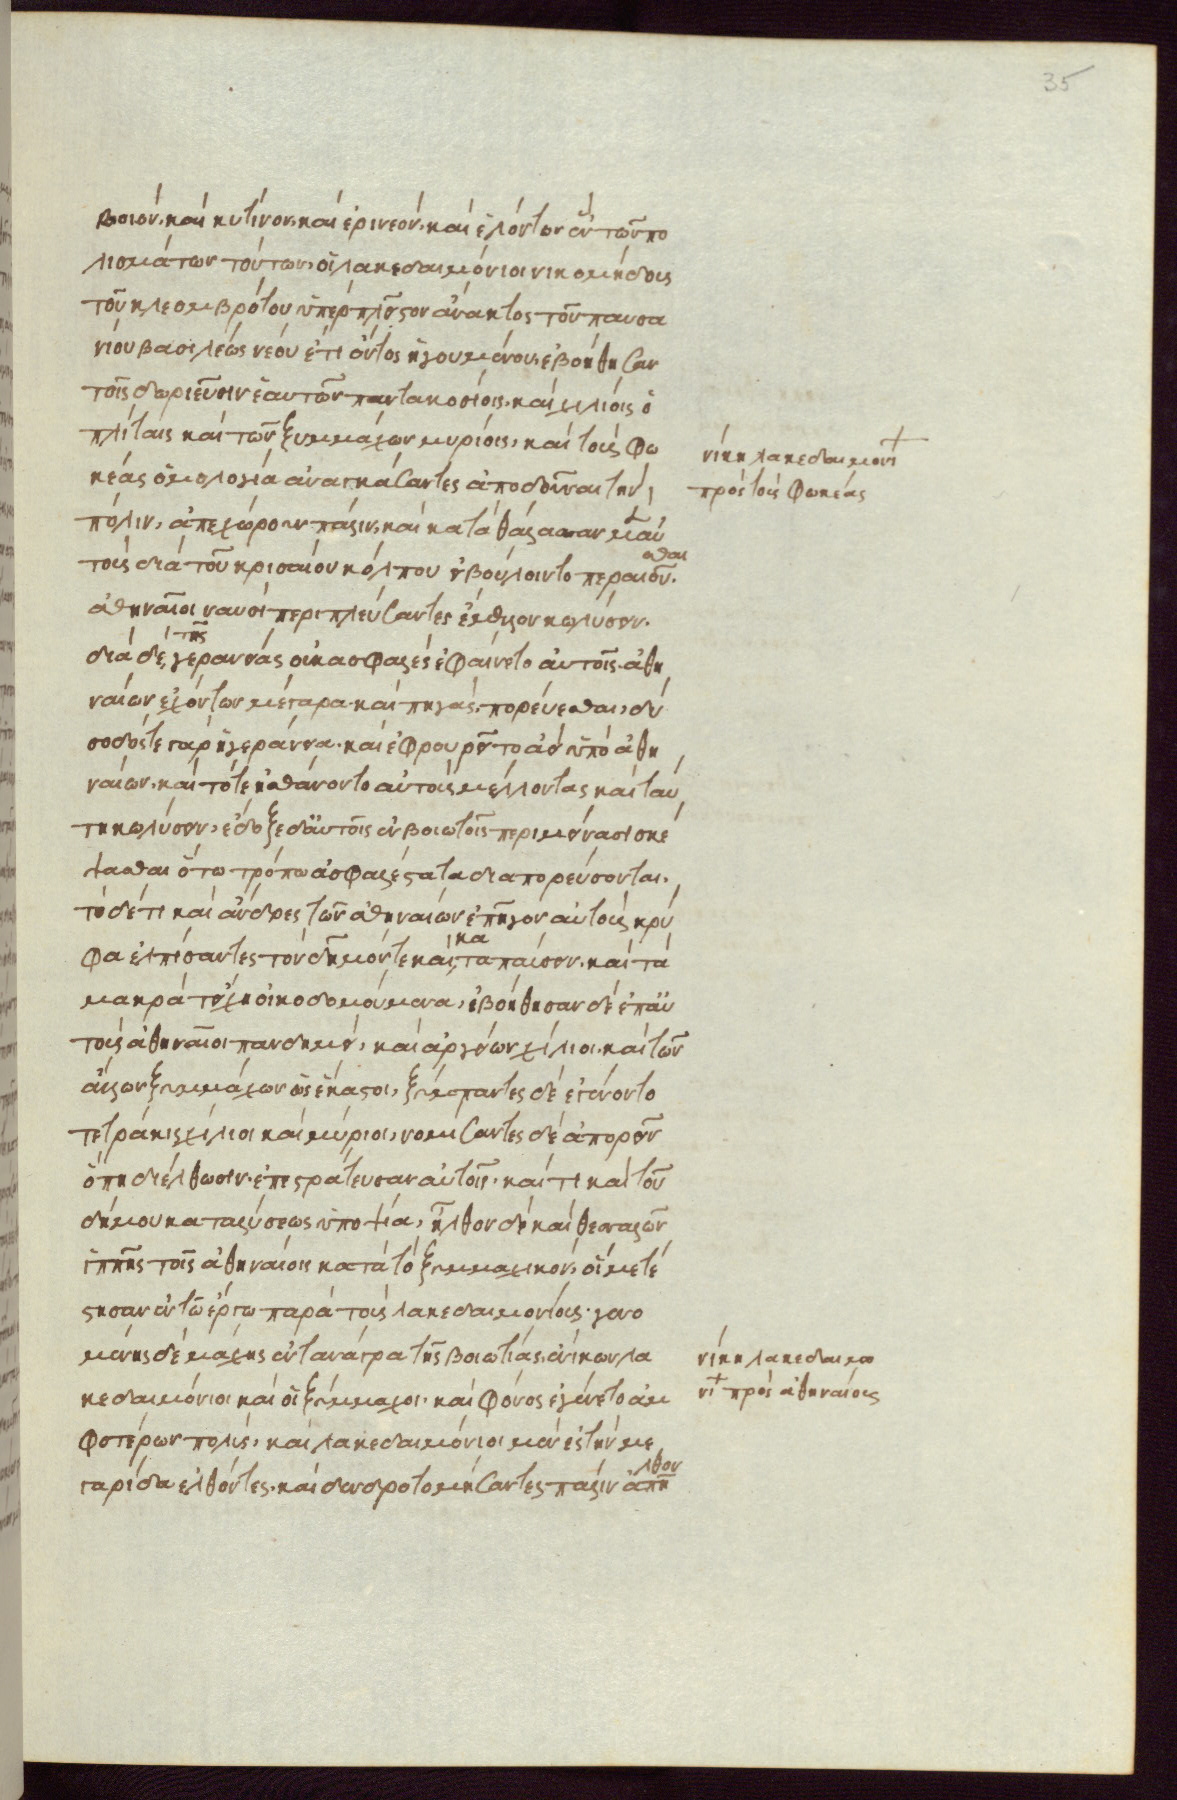 35
βοιόν· καὶ κυτίνον· καὶ ἐρινεόν· καὶ ἑλόντων ἓν τῶν πο
λισμάτων τούτων, οἱ λακεδαιμόνιοι νικομήδους
τοῦ κλεομβρότου ὑπὲρ πλειστοάνακτος τοῦ παυσα
νίου βασιλέως νέου ἔτι ὄντος ἡγουμένου, ἐβοήθησαν
τοῖς δωριεῦσιν ἑαυτῶν πεντακοσίοις· καὶ χιλίοις ὁ
πλίταις καὶ τῶν ξυμμάχων μυρίοις, καὶ τοὺς φω
κέας ὁμολογία ἀναγκάσαντες ἀποδοῦναι τὴν
πόλιν, ἀπεχώρουν πάλιν, καὶ κατὰ θάλασσαν μὲν αὐ
τοὺς διὰ τοῦ κρισαίου κόλπου εἰ βούλοιντο περαιοῦσθαι·
ἀθηναῖοι ναυσὶ περιπλεύσαντες ἔμελλον κωλύσειν·
διὰ δὲ τῆς γερανείας οὐκ ἀσφαλὲς ἐφαίνετο αὐτοῖς· ἀθη
ναίων ἐχόντων μέγαρα καὶ πηγάς· πορεύεσθαι, δύ
σοδός τε γὰρ ἡ γεράνεια· καὶ ἐφρουρεῖτο ἀεὶ ὑπὸ ἀθη
ναίων· καὶ τότε ἠσθάνοντο αὐτοὺς μέλλοντας καὶ ταύ
τη κωλύσειν, ἔδοξε δ' αὐτοῖς ἐν βοιωτοῖς περιμείνασι σκέ
ψασθαι ὅτω τρόπω ἀσφαλέστατα διαπορεύσονται·
τὸ δέ τι καὶ ἄνδρες τῶν ἀθηναίων ἐπῆγον αὐτοὺς κρύ
φα ἐλπίσαντες τὸν δῆμόν τε καὶ καταπαύσειν· καὶ τὰ
μακρὰ τείχη οἰκοδομούμενα, ἐβοήθησαν δὲ ἐπ' αὐ
τοὺς ἀθηναῖοι πανδημεί, καὶ ἀργείων χίλιοι· καὶ τῶν
ἄλλων ξυμμάχων ὡς ἕκαστοι, ξύμπαντες δὲ ἐγένοντο
τετρακισχίλιοι καὶ μύριοι, νομίσαντες δὲ ἀπορεῖν
ὅπη διέλθωσιν· ἐπεστράτευσαν αὐτοῖς· καί τι καὶ τοῦ
δήμου καταλύσεως ὑποψία, ἦλθον δὲ καὶ θεσσαλῶν
ἱππῆς τοῖς ἀθηναίοις κατὰ τὸ ξυμμαχικόν, οἳ μετέ
στησαν ἐν τῶ ἔργω παρὰ τοὺς λακεδαιμονίους· γενο
μένης δὲ μάχης ἐν τανάγρα τῆς βοιωτίας, ἐνίκων λα
κεδαιμόνιοι καὶ οἱ ξύμμαχοι· καὶ φόνος ἐγένετο ἀμ
φοτέρων πολύς, καὶ λακεδαιμόνιοι μὲν ἐς τὴν με
γαρίδα ἐλθόντες· καὶ δενδροτομήσαντες πάλιν ἀπῆλθον
νίκη λακεδαιμονί
πρὸς τοὺς φωκέας
νίκη λακεδαιμο
νί πρὸς ἀθηναίους